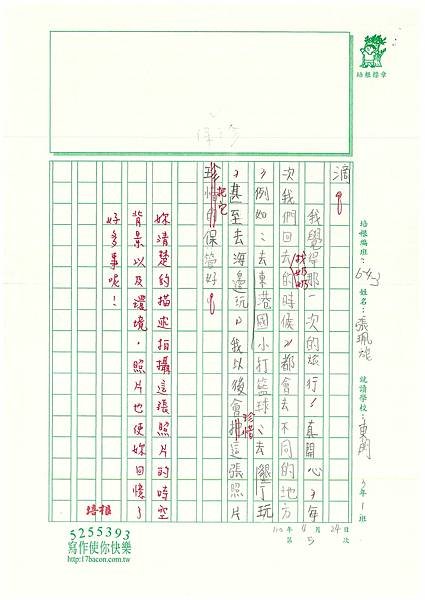 培根標章
培根編班：643 姓名：張珮旎 就讀學校：東興 3年1班
100年4月24日
第5次
滴。
我覺得那一次的旅行，真開心，年
次我們回去找奶奶的時候，都會去不同的地方
，例如：去東港國小打籃球、去墾丁玩
，甚至去海邊玩，我以後會珍惜這張照片
把它保管好。
妳清楚的描述拍攝這張照片的時空
背景以及環境，照片也使妳回憶了
好多事呢！
培根
5255393
寫作使你快樂
http://17bacon.com.tw